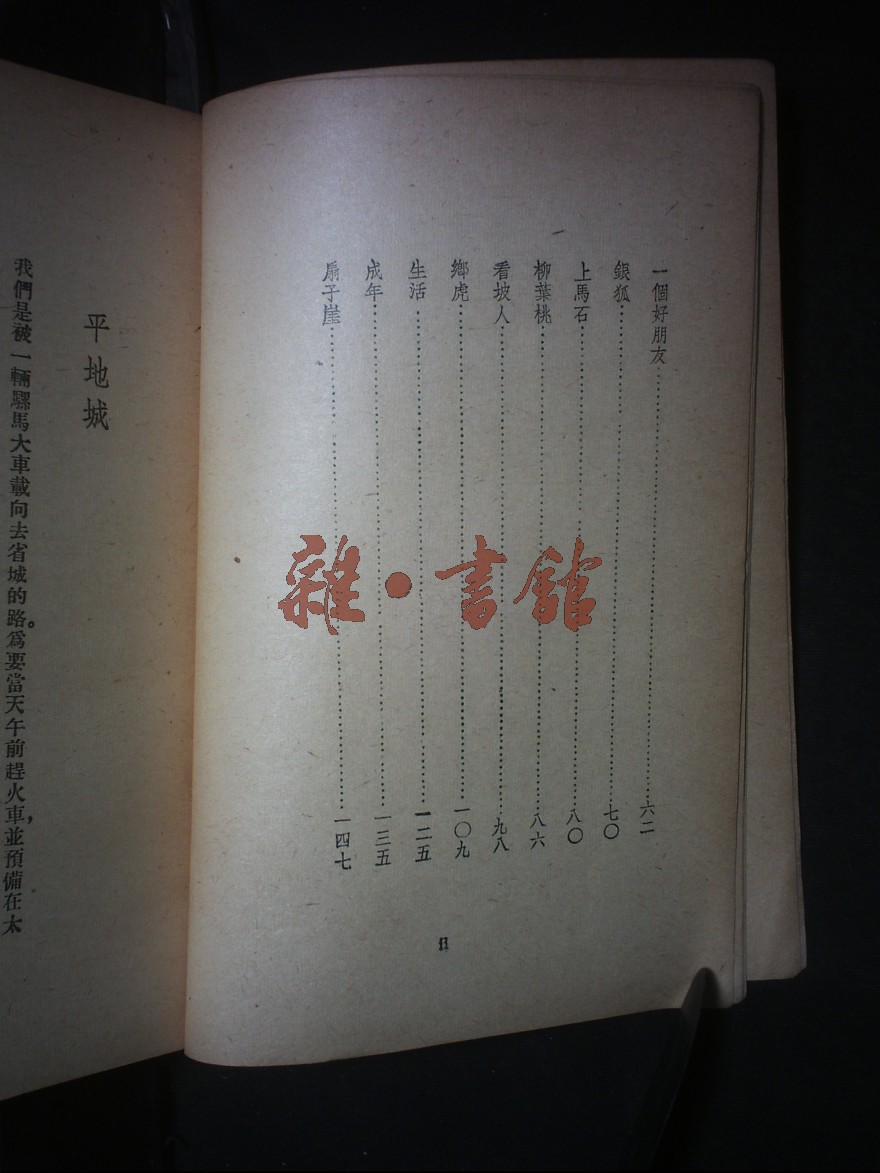 一個好朋友……六二
銀狐……七〇
上馬石……八〇
柳葉桃……八六
看坡人……九八
鄉虎……一〇九
生活……一二五
成年……一三五
扇子崖……一四七
II
雜·書館
平地城
我們是被一輛騾馬大車載向去省城的路。爲要當天午前趕火車，並預備在太